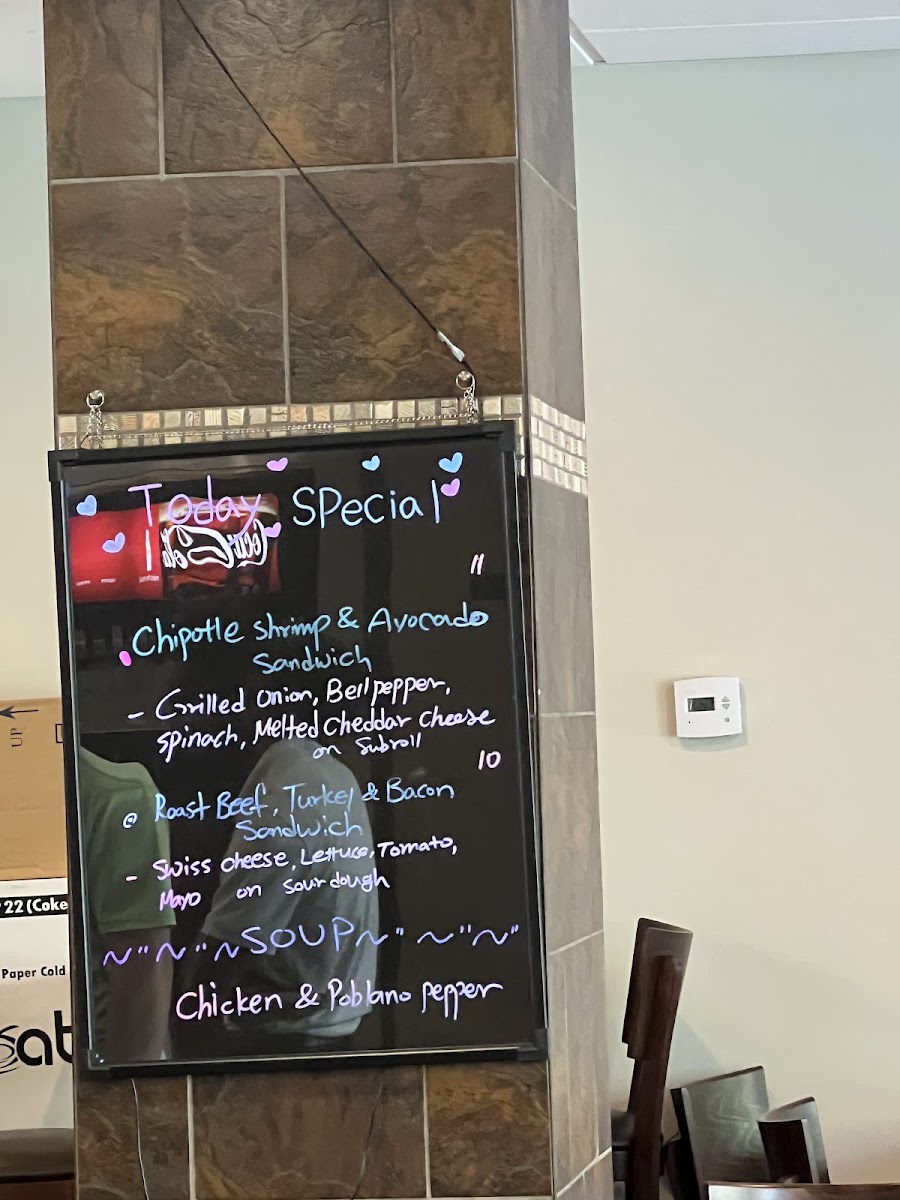 Today SPecial
Coca-Cola
11
Chipotle shrimp & Avocado
Sandwich
- Grilled onion, Bell pepper,
spinach, Melted cheddar cheese
on Subroll
10
@ Roast Beef, Turkey & Bacon
Sandwich
- Swiss cheese, Lettuce, Tomato,
Mayo on sourdough
~"~"~SOUP~"~"~"
Chicken & Poblano pepper
UP
22 (Coke
Paper Cold
at